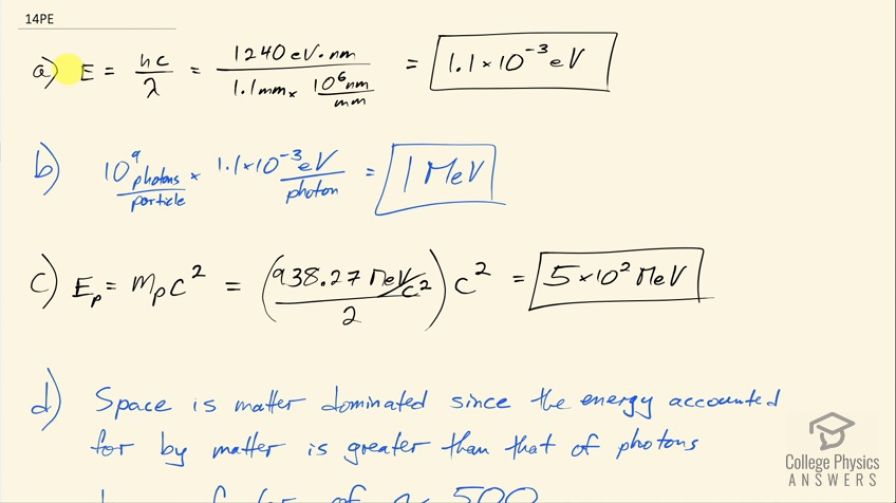 14PE
a) E = hc/λ = 1240 eV·nm / 1.1mm × 10⁶ nm/mm = 1.1×10⁻³ eV
b) 10⁹ photons/particle × 1.1×10⁻³ eV/photon = 1 MeV
c) Eₚ = mₚc² = (938.27 MeV/c² / 2) c² = 5×10² MeV
d) Space is matter dominated since the energy accounted
for by matter is greater than that of photons
500
College Physics
ANSWERS